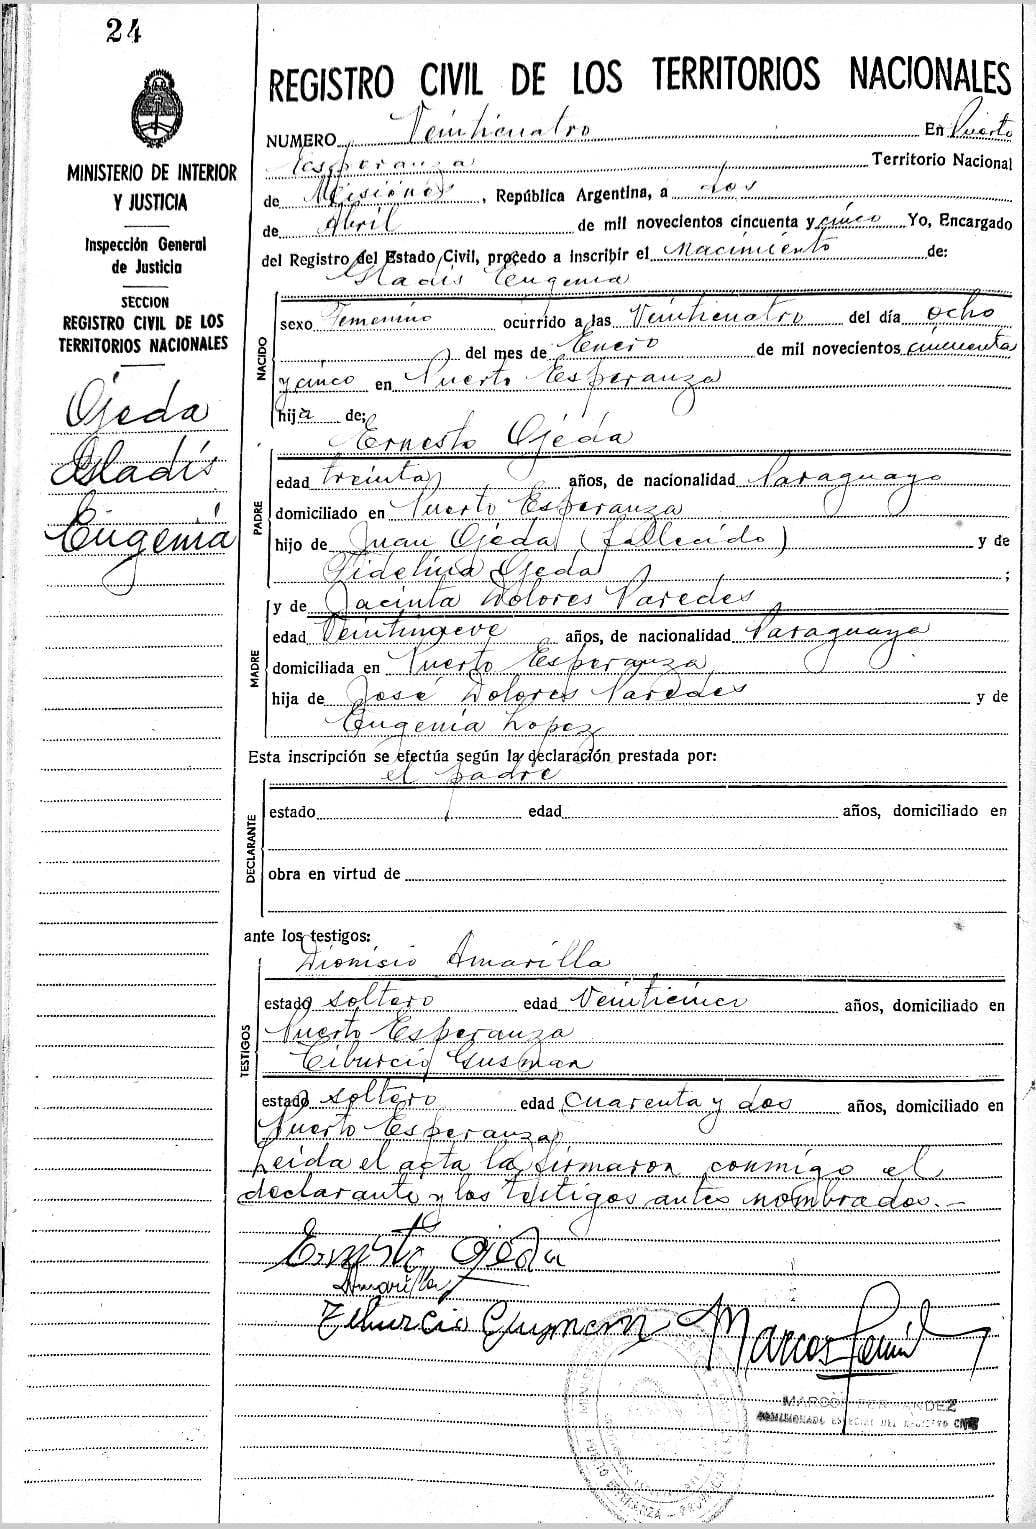 24
MINISTERIO DE INTERIOR
Y JUSTICIA
Inspección General
de Justicia
SECCION
REGISTRO CIVIL DE LOS
TERRITORIOS NACIONALES
Ojeda
Gladís
Eugenia
REGISTRO CIVIL DE LOS TERRITORIOS NACIONALES
NUMERO Veinticuatro En Puerto
Esperanza Territorio Nacional
de Misiones, República Argentina, a dos
de Abril de mil novecientos cincuenta y cinco Yo, Encargado
del Registro del Estado Civil, procedo a inscribir el Nacimiento de:
Gladís Eugenia
NACIDO
sexo Femenino ocurrido a las Veinticuatro del día ocho
del mes de Enero de mil novecientos cincuenta
y cinco en Puerto Esperanza
hija de;
Ernesto Ojeda
PADRE
edad treinta años, de nacionalidad Paraguayo
domiciliado en Puerto Esperanza
hijo de Juan Ojeda (fallecido) y de
Fidelina Ojeda ;
y de Jacinta Dolores Paredes
MADRE
edad Veintinueve años, de nacionalidad Paraguaya
domiciliada en Puerto Esperanza
hija de José Dolores Paredes y de
Eugenia Lopez
Esta inscripción se efectúa según la declaración prestada por:
el padre
DECLARANTE
estado edad años, domiciliado en
obra en virtud de
ante los testigos:
Dionisio Amarilla
TESTIGOS
estado soltero edad Veinticinco años, domiciliado en
Puerto Esperanza
Tiburcio Gusman
estado soltero edad cuarenta y dos años, domiciliado en
Puerto Esperanza
Leida el acta la firmaron conmigo el
declarante y los testigos antes nombrados.—
Ernesto Ojeda
Amarilla
Tiburcio Gusman
Marcos
MARCOS FERNANDEZ
COMISIONADO ESPECIAL DEL REGISTRO CIVIL